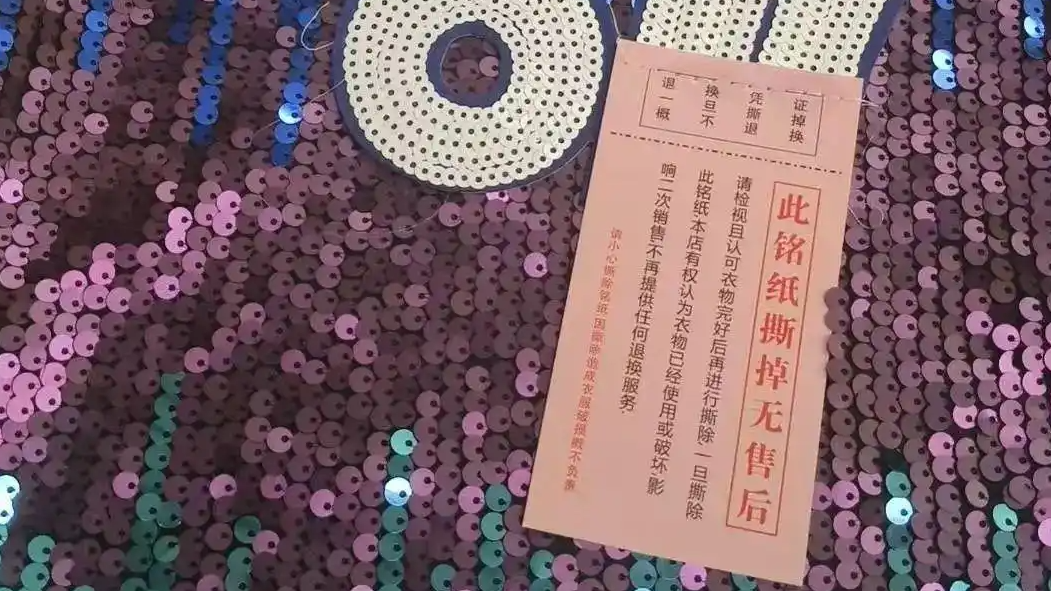 证掉换
凭撕退
换旦不
退一概
此铭纸撕掉无售后
请检视且认可衣物完好后再进行撕除一旦撕除
此铭纸本店有权认为衣物已经使用或破坏影
响二次销售不再提供任何退换服务
请小心撕除铭纸因撕除造成衣服破损概不负责